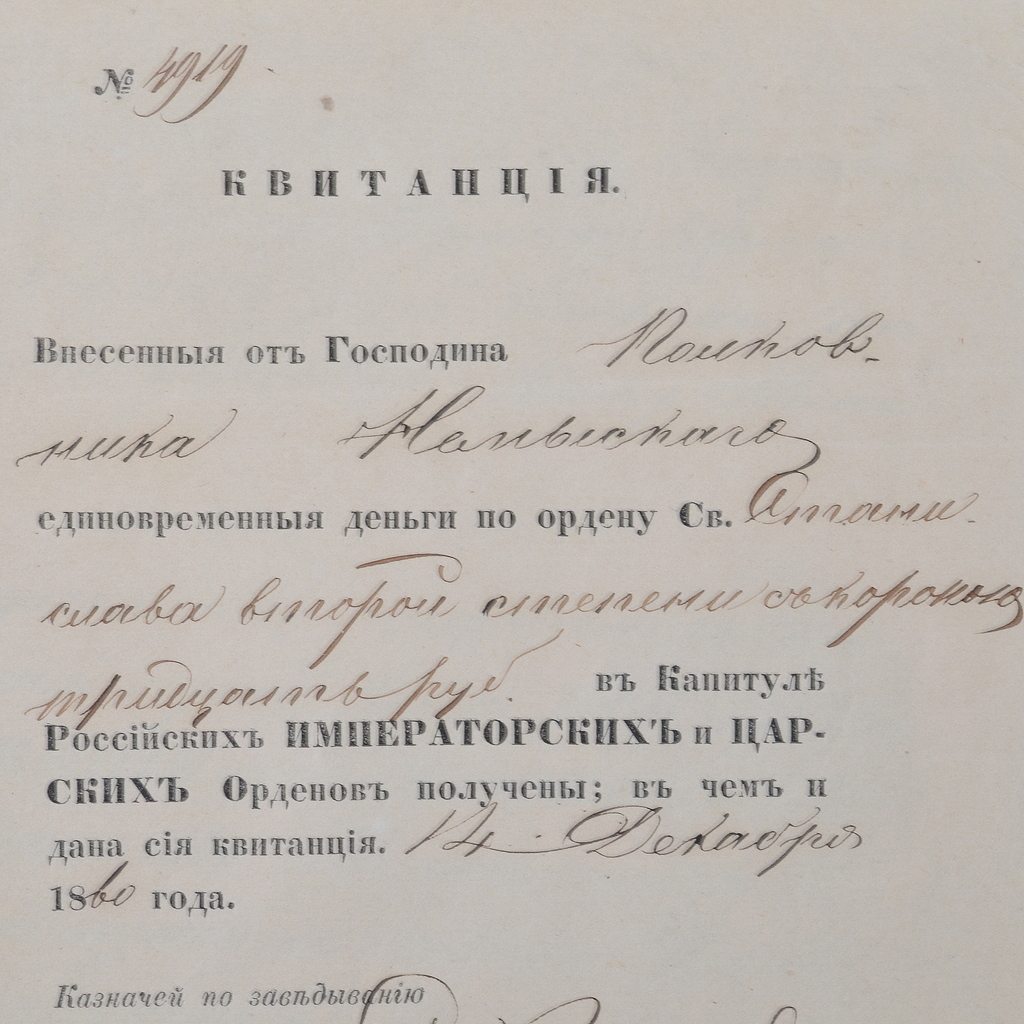 № 4919
КВИТАНЦІЯ.
Внесенныя отъ Господина Полков-
ника
единовременныя деньги по ордену Св. Стани-
слава второй степени съ короною
тридцать руб. въ Капитулѣ
Россійскихъ ИМПЕРАТОРСКИХЪ и ЦАР-
СКИХЪ Орденовъ получены; въ чемъ и
дана сія квитанція. 14 Декабря
1860 года.
Казначей по завѣдыванію